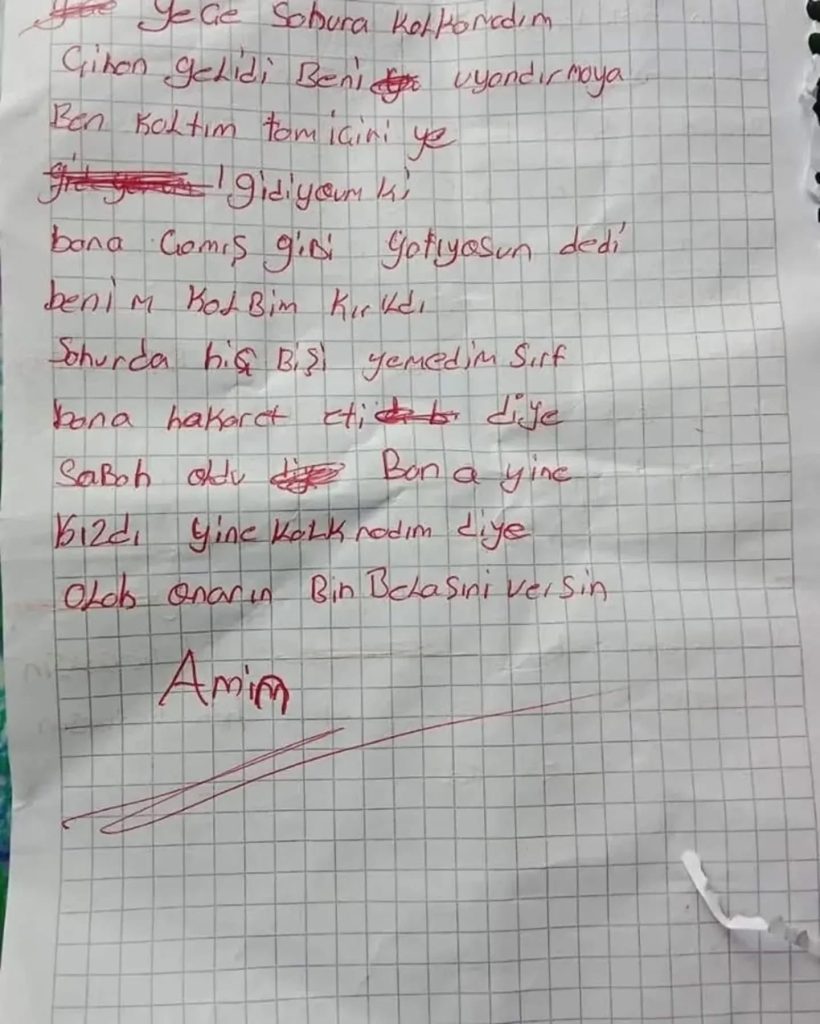 yece Sohura kalkamadım
Cihan gelidi Beni uyandırmaya
Ben kaltım tam içini ye
gidiyoum ki
bana Camış gibi yatıyosun dedi
benim kalbim kırıldı
Sahurda hiç Bişi yemedim sırf
bana hakaret eti diye
Sabah oldu Bana yine
kızdı yine kalkmadım diye
Olah onarın Bin Belasını versin
Amim